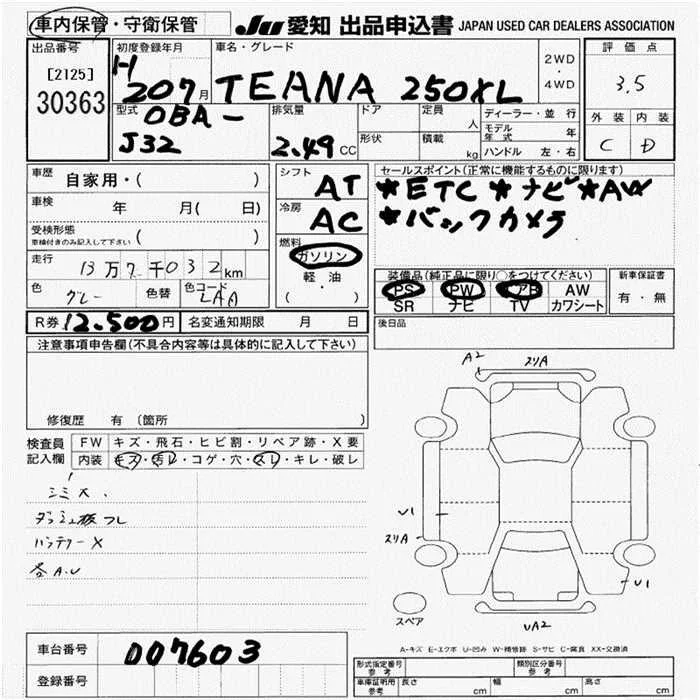 車内保管・守衛保管
JU 愛知 出品申込書 JAPAN USED CAR DEALERS ASSOCIATION
出品番号
[2125]
30363
初度登録年月
H 20 7月
車名・グレード
TEANA 250XL
2WD
・
4WD
評価点
3.5
外装 内装
C D
型式
OBA-
J32
排気量
2.49 CC
ドア
形状
定員
人
積載
kg
ディーラー・並行
モデル年式 年
ハンドル 左・右
車歴 自家用・( )
車検 年 月( 日)
受検形態
車検付きのみ記入して下さい ( )
走行 13万7千032km
色 グレー 色替 色コード LAA
シフト AT
冷房 AC
燃料
ガソリン
軽・油
( )
セールスポイント(正常に機能するものに限ります)
*ETC *ナビ *AW
*バックカメラ
装備品(純正品に限り○をつけてください)
PS PW エアB AW
SR ナビ TV カワシート
新車保証書
有・無
R券 12,500円 名変通知期限 月 日
後日品
注意事項申告欄(不具合内容等は具体的に記入して下さい)
修復歴 有 〔箇所 〕
検査員記入欄
FW キズ・飛石・ヒビ割・リペア跡・X要
内装 キズ・汚レ・コゲ・穴・スレ・キレ・破レ
シミ大.
ダッシュ板フレ
バッテリーX
各A.U
A2 スリA
U1
スリA
U1
UA2
スペア
A-キズ E-エクボ U-凹み W-補修跡 S-サビ C-腐食 XX-交換済
車台番号 007603
登録番号
形式指定番号
参考
類別区分番号
参考
車庫証明用
参考
長さ cm 幅 cm 高さ cm